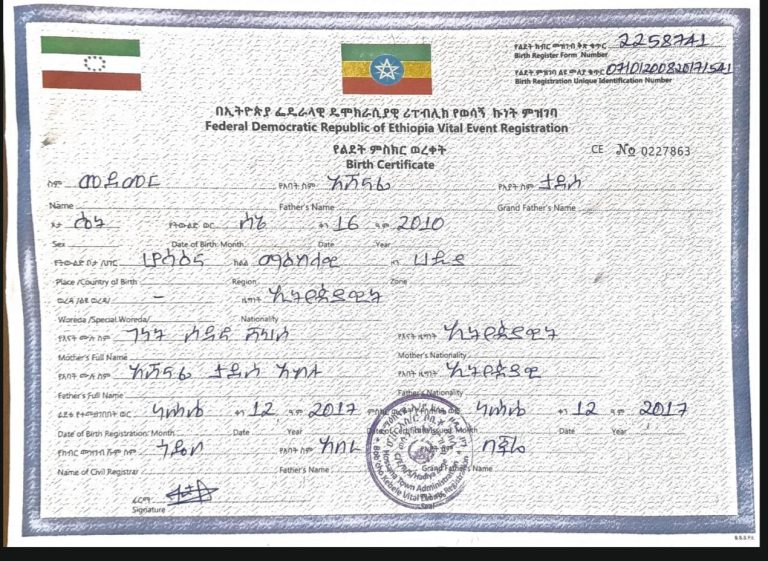 የልደት ክብር መዝገብ ቅጽ ቁጥር 2258741
Birth Register Form Number
የልደት ምዝገባ ልዩ መለያ ቁጥር 07101200820171541
Birth Registration Unique Identification Number
በኢትዮጵያ ፌዴራላዊ ዲሞክራሲያዊ ሪፐብሊክ የወሳኝ ኩነት ምዝገባ
Federal Democratic Republic of Ethiopia Vital Event Registration
የልደት ምስክር ወረቀት
Birth Certificate
CE No 0227863
ስም መደመር የአባት ስም አሸናፊ የአያት ስም ታደሰ
Name Father's Name Grand Father's Name
ፆታ ሴት የትውልድ ወር ሰኔ ቀን 16 ዓም 2010
Sex Date of Birth: Month Date Year
የትውልድ ቦታ /ሀገር ሆሳዕና ክልል ማዕከላዊ ዞን ሀዲያ
Place /Country of Birth Region Zone
ወረዳ /ልዩ ወረዳ/ – ዜግነት ኢትዮጵያዊት
Woreda /Special Woreda/ Nationality
የእናት ሙሉ ስም ገነት የእናት ዜግነት ኢትዮጵያዊት
Mother's Full Name Mother's Nationality
የአባት ሙሉ ስም አሸናፊ ታደሰ የአባት ዜግነት ኢትዮጵያዊ
Father's Full Name Father's Nationality
ልደቱ የተመዘገበበት ወር ካሐሴ ቀን 12 ዓ ም 2017 ካሐሴ ቀን 12 ዓ ም 2017
Date of Birth Registration: Month Date Year Date of Certificate Issued: Month Date Year
የክብር መዝገብ ሹም ስም የአባት ስም አበራ
Name of Civil Registrar Father's Name Grand Father's Name
ፊርማ
Signature
Hosana Town Administration
Kebele Vital Events Registration
Seal
B.S.S.P.E